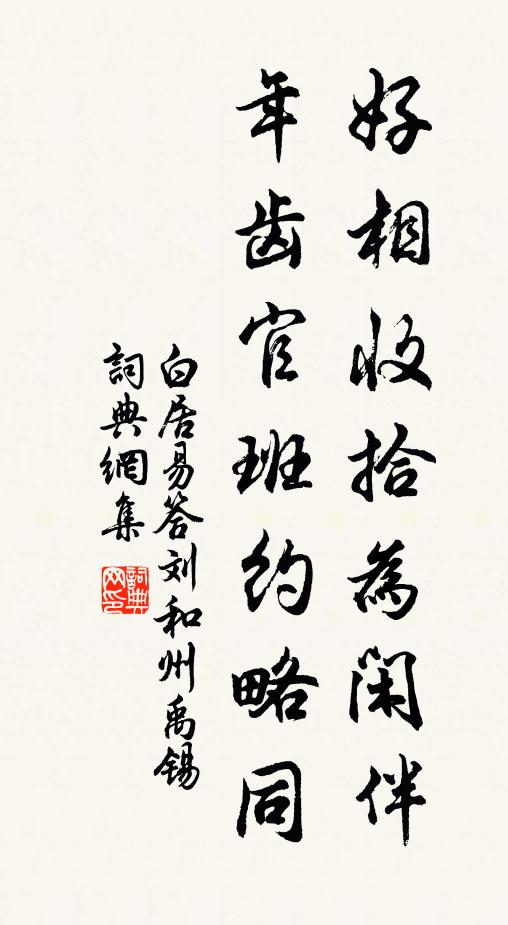 好相收拾為閑伴
年齿官班約略同
白居易答刘和州禹锡
詞典網集
詞典网印